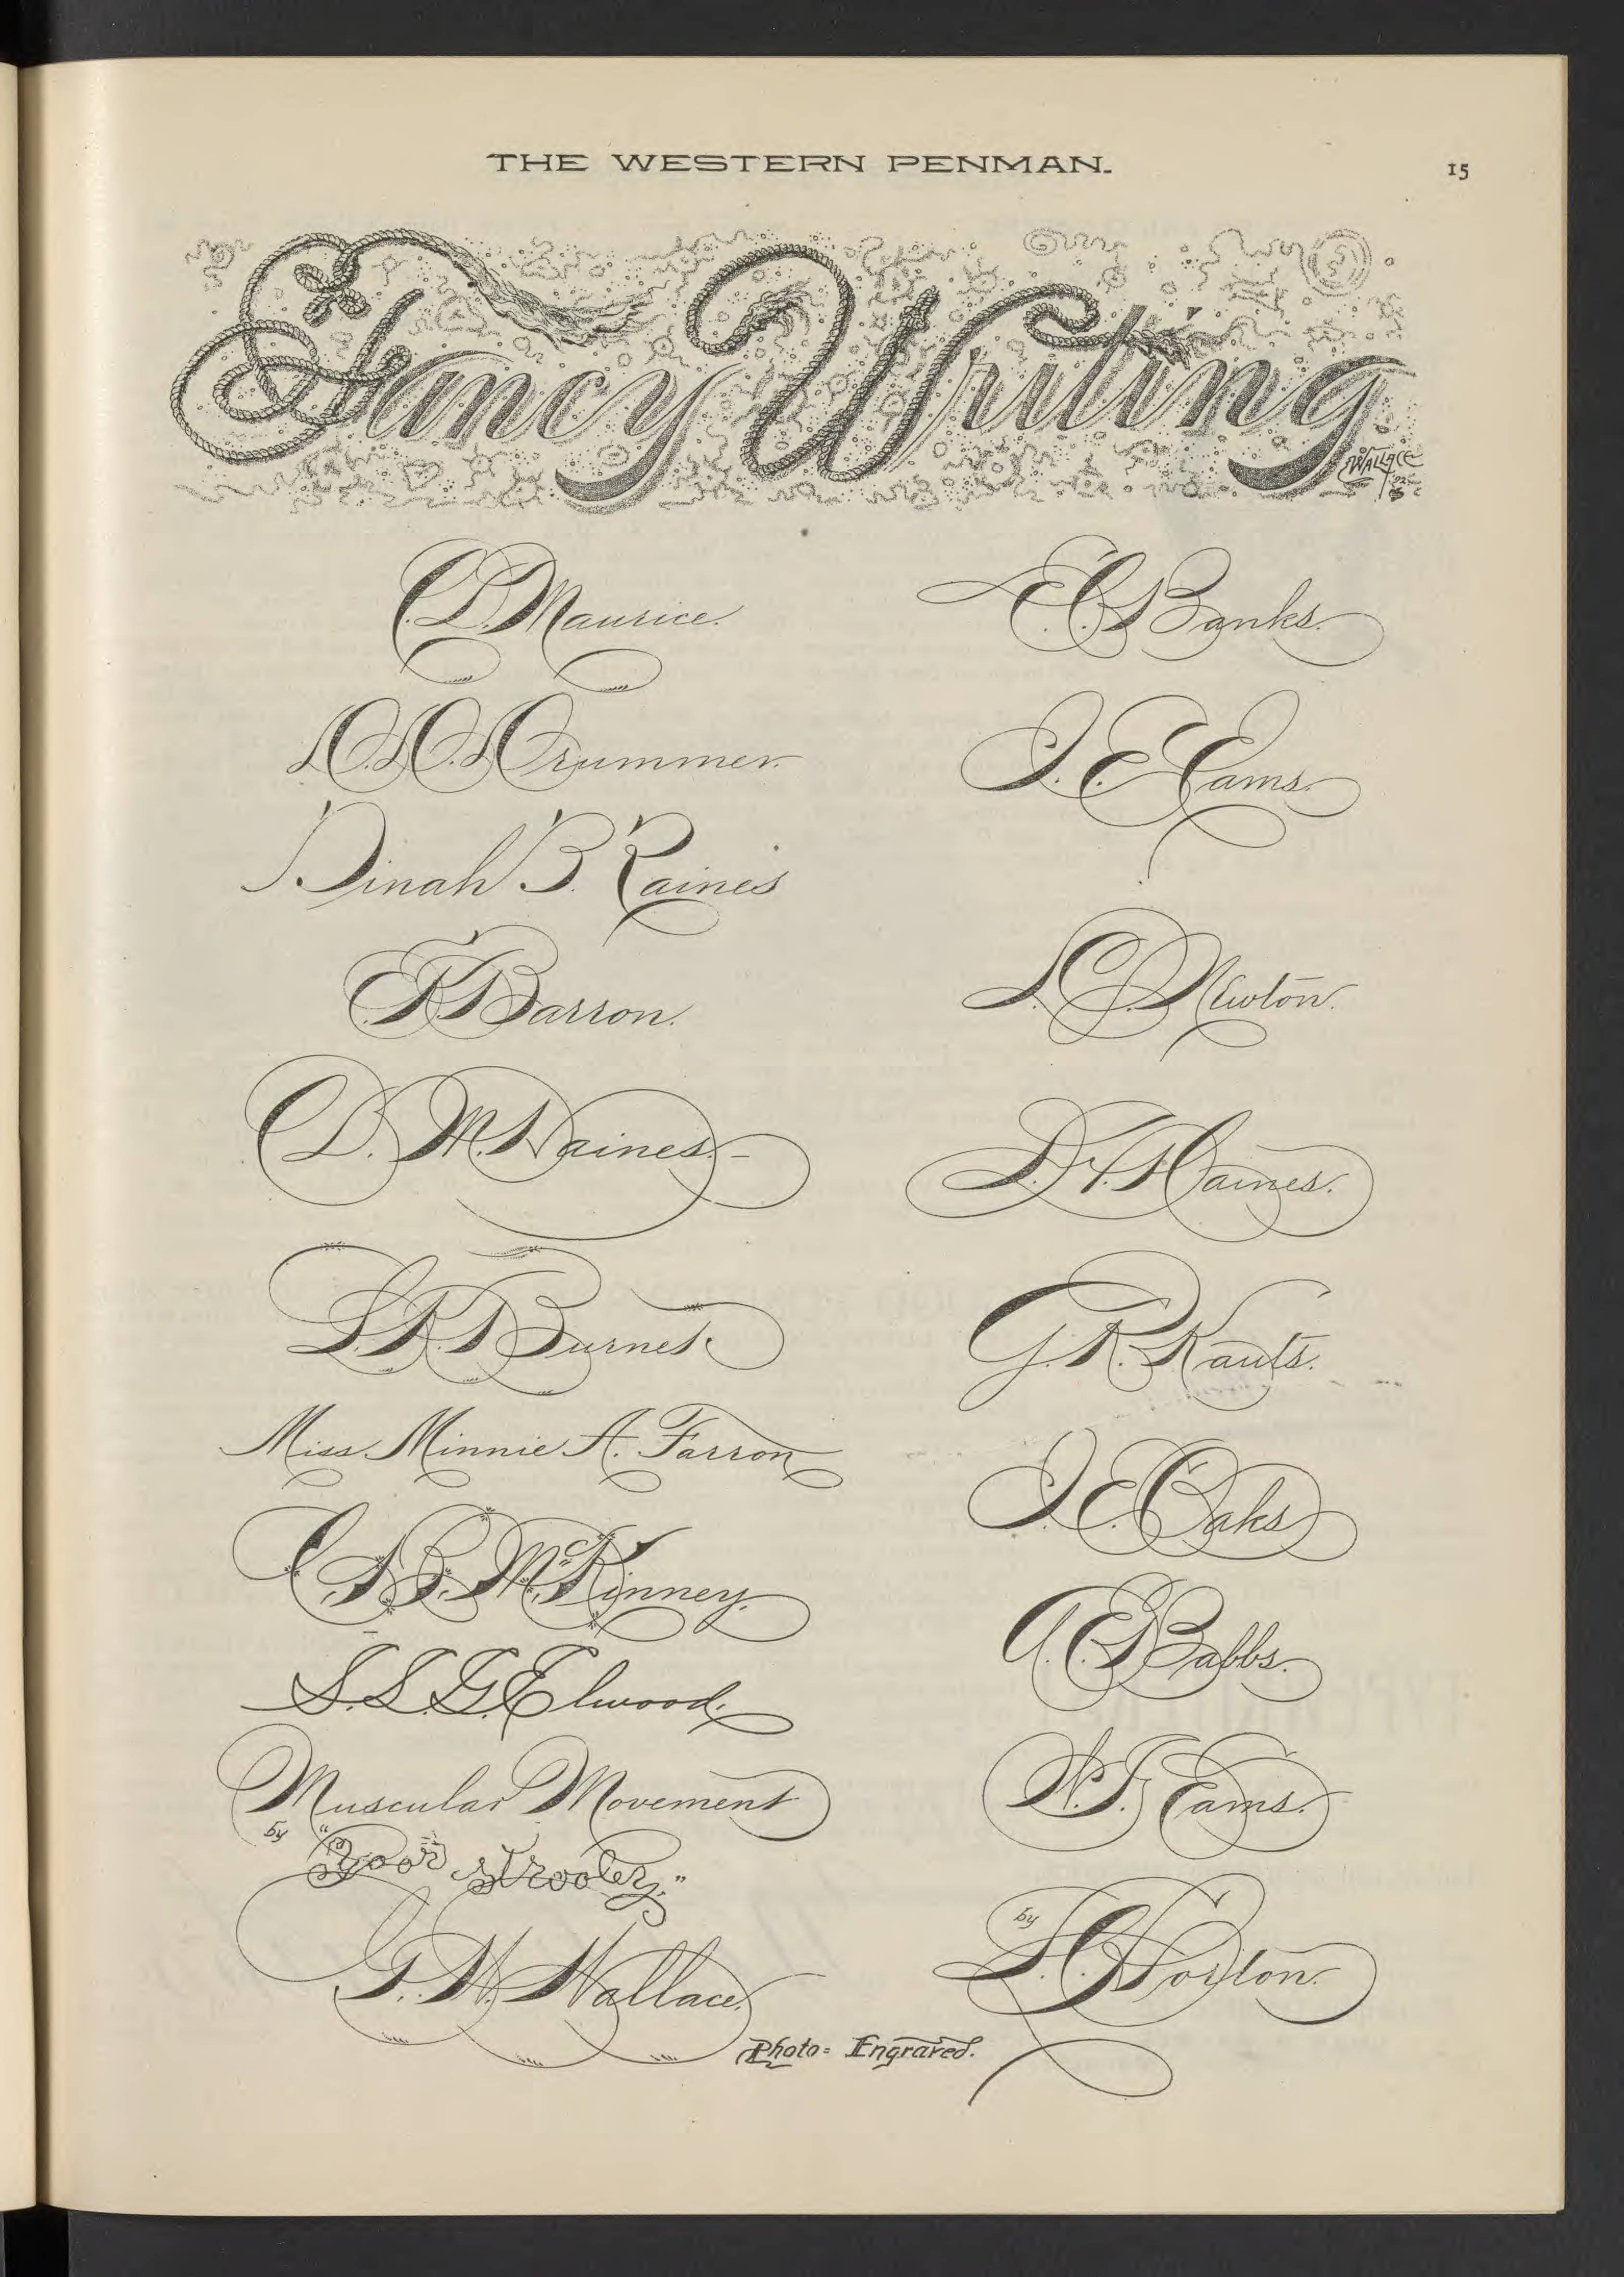 THE WESTERN PENMAN.
15
Fancy Writing
WALLACE
C.D. Maurice.
D.D. Drummer.
Dinah B. Raines
E.K. Barron.
C.D. M. Naines.
L.R. Burnes
Miss Minnie A. Farron
C.A.B. McKinney.
S.S.G. Elwood.
Muscular Movement
by
"Yoors trooley."
G.W. Wallace.
E.C. Banks.
J.E. Eams.
L.C.J. Newton.
D.F. Haines.
G.R. Kauts.
J.E. Oaks
A.E. Babbs.
W.J. Eams.
by
L.C. Horton.
Photo=Engraved.